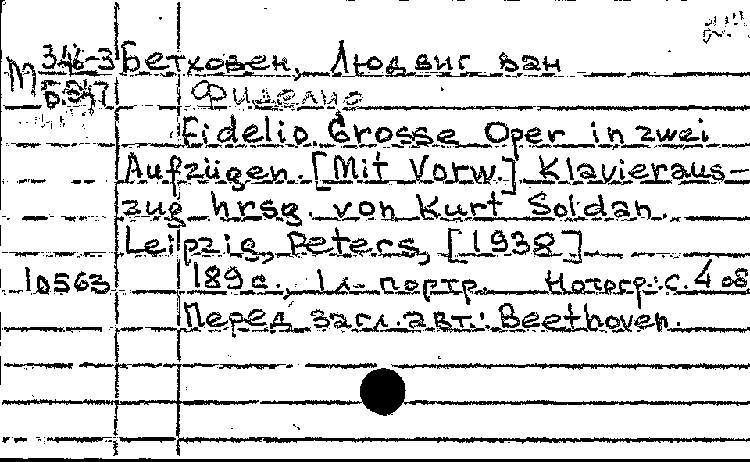 М 346-3 Бетховен, Людвиг ван
Б547 Фиделио
Fidelio. Grosse Oper in zwei
Aufzügen. [Mit Vorw.] Klavieraus-
zug hrsg. von Kurt Soldan.
Leipzig, Peters, [1938]
10563 189 с., 1 л. портр. Нотогр.: с. 4 об
Перед загл. авт.: Beethoven.